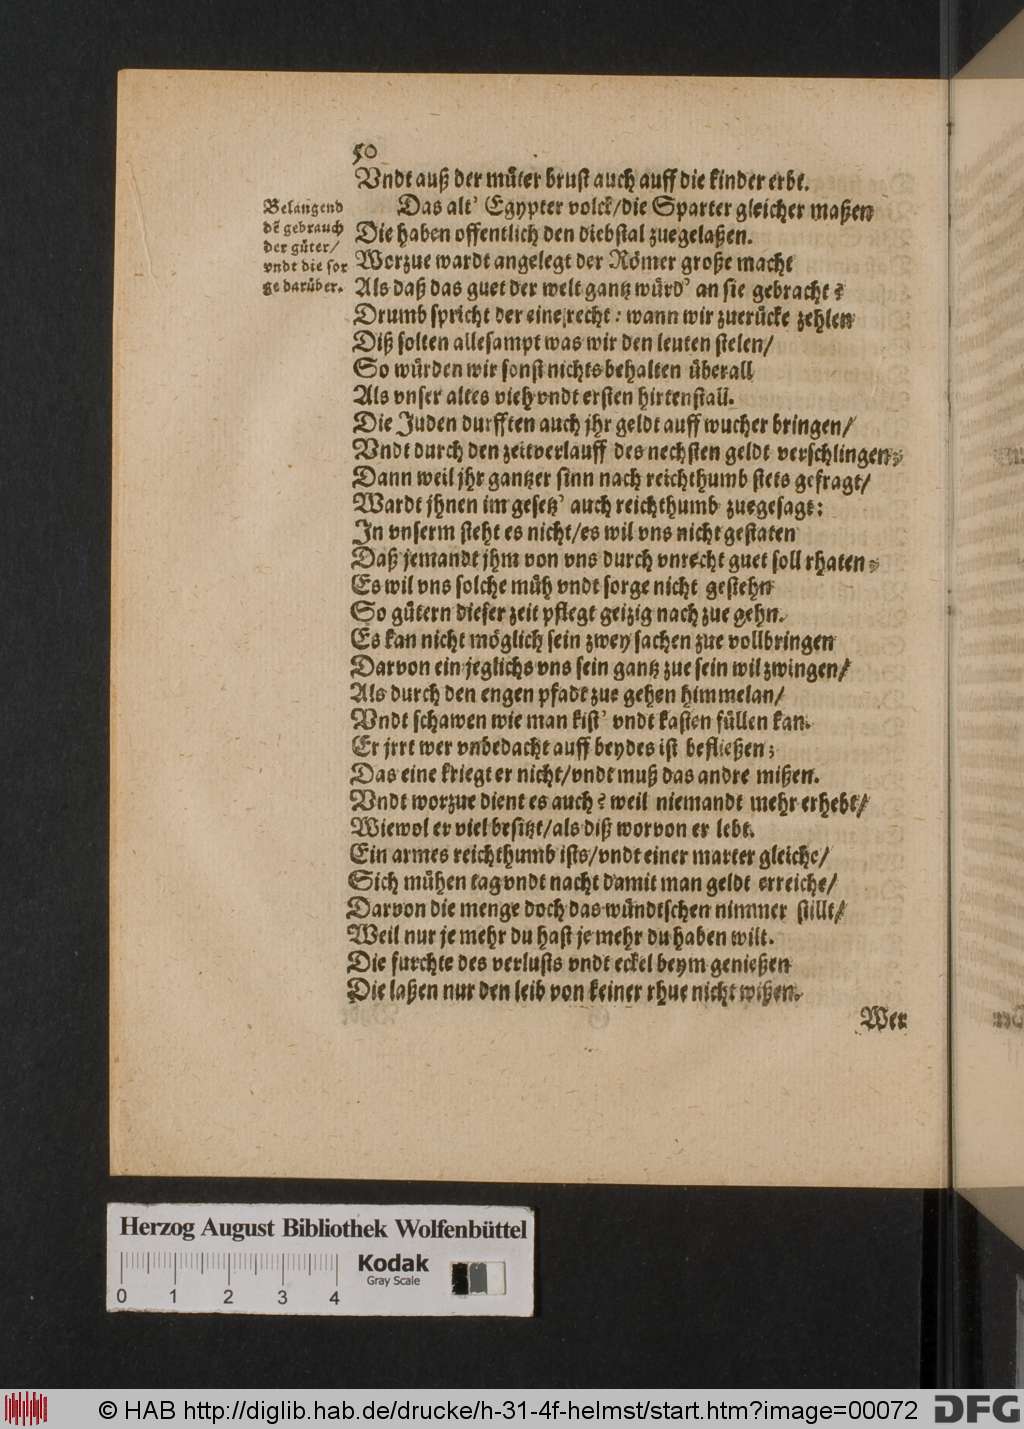 50
Vndt auß der muͤter brust auch auff die kinder erbt.
Belangend
dē gebrauch
der guͤter/
vndt die sor
ge daruͤber.
Das alt’ Egypter volck/die Sparter gleicher maßen
Die haben offentlich den diebstal zuegelaßen.
Worzue wardt angelegt der Roͤmer große macht
Als daß das guet der welt gantz wuͤrd’ an sie gebracht?
Drumb spricht der eine recht: wann wir zueruͤcke zehlen
Diß solten allesampt was wir den leuten stelen/
So wuͤrden wir sonst nichts behalten uͤberall
Als vnser altes vieh vndt ersten hirtenstall.
Die Juden durfften auch jhr geldt auff wucher bringen/
Vndt durch den zeitverlauff des nechsten geldt verschlingen;
Dann weil jhr gantzer sinn nach reichthumb stets gefragt/
Wardt jhnen im gesetz’ auch reichthumb zuegesagt:
In vnserm steht es nicht/es wil vns nicht gestaten
Daß jemandt jhm von vns durch vnrecht guet soll rhaten;
Es wil vns solche muͤh vndt sorge nicht gestehn
So guͤtern dieser zeit pflegt geizig nach zue gehn.
Es kan nicht moͤglich sein zwey sachen zue vollbringen
Darvon ein jeglichs vns sein gantz zue sein wil zwingen/
Als durch den engen pfadt zue gehen himmelan/
Vndt schawen wie man kist’ vndt kasten fuͤllen kan.
Er jrrt wer vnbedacht auff beydes ist befließen;
Das eine kriegt er nicht/vndt muß das andre mißen.
Vndt worzue dient es auch? weil niemandt mehr erhebt/
Wiewol er viel besitzt/als diß worvon er lebt.
Ein armes reichthumb ists/vndt einer marter gleiche/
Sich muͤhen tag vndt nacht damit man geldt erreiche/
Darvon die menge doch das wuͤndtschen nimmer stillt/
Weil nur je mehr du hast je mehr du haben wilt.
Die furchte des verlusts vndt eckel beym genießen
Die laßen nur den leib von keiner rhue nicht wißen.
Wer
Herzog August Bibliothek Wolfenbüttel
Kodak
Gray Scale
0 1 2 3 4
© HAB http://diglib.hab.de/drucke/h-31-4f-helmst/start.htm?image=00072
DFG